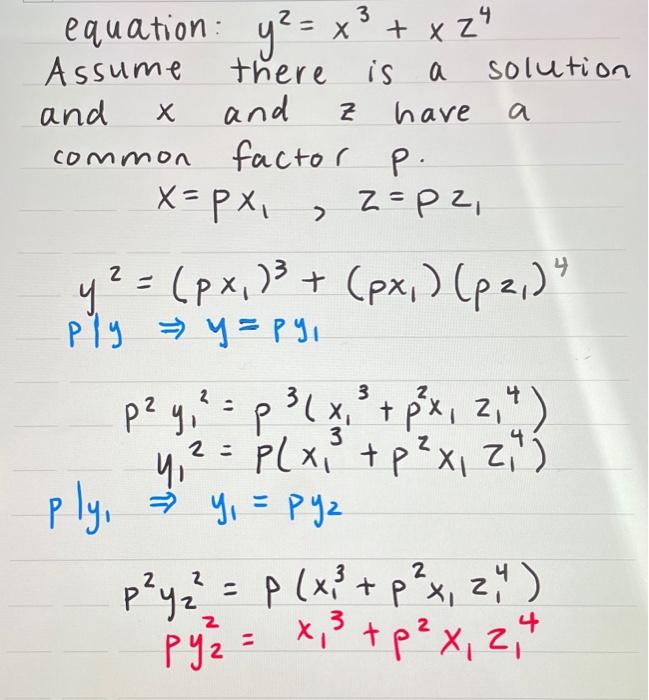 equation: y² = x³ + x z⁴
Assume there is a solution
and x and z have a
common factor p.
x = px₁ , z = pz₁
y² = (px₁)³ + (px₁)(pz₁)⁴
p|y ⇒ y = py₁
p² y₁² = p³(x₁³ + p²x₁ z₁⁴)
y₁² = p(x₁³ + p²x₁ z₁⁴)
p|y₁ ⇒ y₁ = py₂
p²y₂² = p(x₁³ + p²x₁ z₁⁴)
py₂² = x₁³ + p²x₁z₁⁴